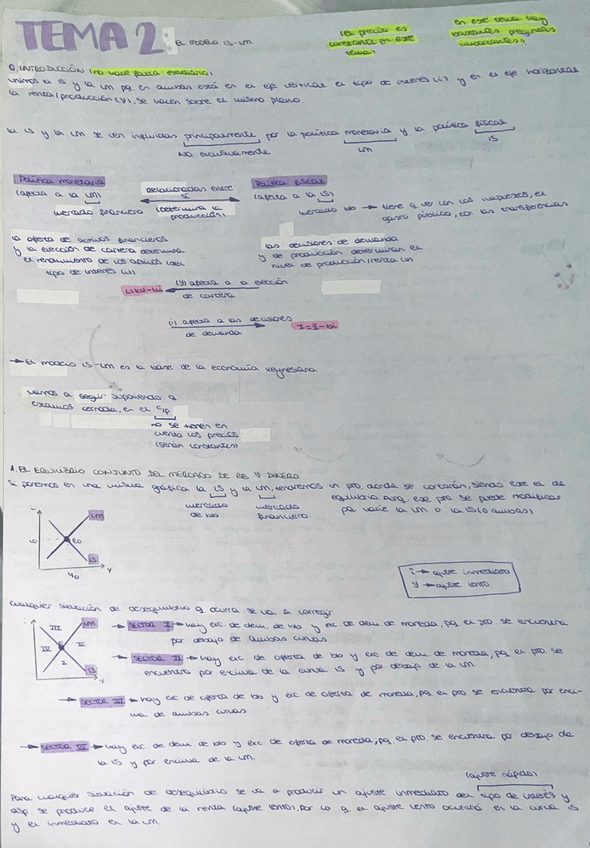 TEMA 2: EL MODELO IS-LM
(el precio es constante en este tema)
en este tema hay bastantes preguntas importantes.
0, INTRODUCCIÓN (no hace falta estudiarlo)
unimos la IS y la LM pq en ambas está en el eje vertical el tipo de interés (i) y en el eje horizontal
la renta/producción (Y), se hacen sobre el mismo plano.
la IS y la LM se ven influidas principalmente por la política monetaria y la política fiscal
no exclusivamente
LM
IS
Política monetaria
(afecta a la LM)
mercado financiero
relacionadas entre sí
(determina la producción)
Política fiscal
(afecta a la IS)
mercado bb → tiene q ver con los impuestos, el
gasto público, con las transferencias
la oferta de activos financieros
y la elección de cartera determina
el rendimiento de los activos (del
tipo de interés (i))
las decisiones de demanda
y de producción determinan el
nivel de producción/renta (Y)
L=kY-hi
(Y) afecta a la elección
de cartera
(i) afecta a las decisiones
de demanda
I=Ī-bi
→ El modelo IS-LM es la base de la economía keynesiana
vamos a seguir suponiendo q
estamos cerrada, en el c/p
no se tienen en
cuenta los precios
(serán constantes)
1. EL EQUILIBRIO CONJUNTO DEL MERCADO DE BB Y DINERO
Si ponemos en una misma gráfica la IS y la LM, tendremos un pto donde se cortarán, siendo ese el de
equilibrio. Aunq ese pto se puede modificar
pq varíe la LM o la IS (o ambas)
mercado de bb
mercado financiero
i
LM
i0
E0
IS
Y0
Y
i → ajuste inmediato
Y → ajuste lento
Cualquier situación de desequilibrio q ocurra se va a corregir
i
LM
III
IV
E
II
I
IS
Y
→ SECTOR I → hay exc de dem de bb y exc de dem de moneda, pq el pto se encuentra
por debajo de ambas curvas
→ SECTOR II → hay exc. de oferta de bb y exc de dem de moneda, pq el pto se
encuentra por encima de la curva IS y por debajo de la LM
→ SECTOR III → hay exc de oferta de bb y exc de oferta de moneda, pq el pto se encuentra por enci-
ma de ambas curvas
→ SECTOR IV → hay exc de dem de bb y exc de oferta de moneda, pq el pto. se encuentra por debajo de
la IS y por encima de la LM.
(ajuste rápido)
Para cualquier situación de desequilibrio se va a producir un ajuste inmediato del tipo de interés y
dsp. se produce el ajuste de la renta (ajuste lento). Por lo q el ajuste lento ocurrirá en la curva IS
y el inmediato en la LM.